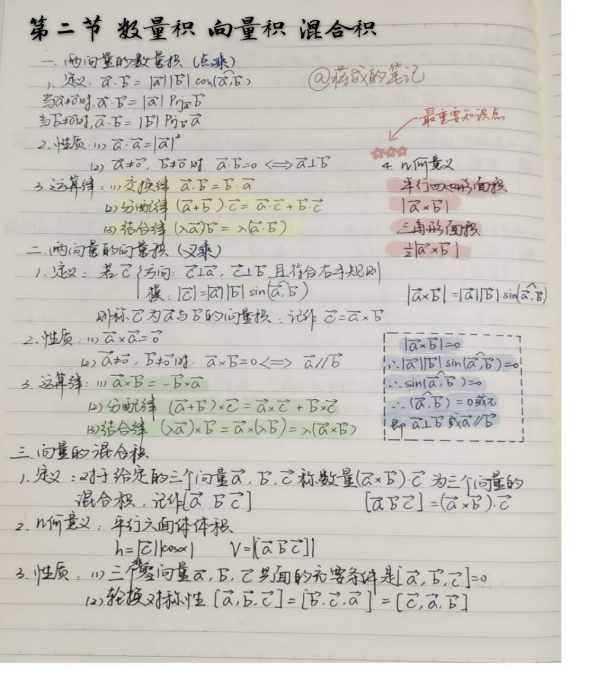 第二节 数量积 向量积 混合积
一、两向量的数量积 (点乘)
1. 定义: a⃗·b⃗ = |a⃗||b⃗|cos(a⃗,b⃗)
当a⃗≠0⃗时, a⃗·b⃗ = |a⃗| Prj_a⃗ b⃗
当b⃗≠0⃗时, a⃗·b⃗ = |b⃗| Prj_b⃗ a⃗
@蒋蒋的笔记
2. 性质: (1) a⃗·a⃗=|a⃗|²
(2) a⃗≠0⃗, b⃗≠0⃗时 a⃗·b⃗=0 ⟺ a⃗⊥b⃗
3. 运算律: (1) 交换律 a⃗·b⃗ = b⃗·a⃗
(2) 分配律 (a⃗+b⃗)·c⃗ = a⃗·c⃗ + b⃗·c⃗
(3) 结合律 (λa⃗)·b⃗ = λ(a⃗·b⃗)
最重要知识点
☆☆☆
4. 几何意义
平行四边形面积
|a⃗×b⃗|
三角形面积
½|a⃗×b⃗|
二、两向量的向量积 (叉乘)
1. 定义: 若c⃗ { 方向: c⃗⊥a⃗, c⃗⊥b⃗ 且符合右手规则
模: |c⃗|=|a⃗||b⃗|sin(a⃗,b⃗)
|a⃗×b⃗|=|a⃗||b⃗|sin(a⃗,b⃗)
则称c⃗为a⃗与b⃗的向量积. 记作 c⃗=a⃗×b⃗
2. 性质: (1) a⃗×a⃗=0⃗
(2) a⃗≠0⃗, b⃗≠0⃗时. a⃗×b⃗=0 ⟺ a⃗∥b⃗
3. 运算律: (1) a⃗×b⃗ = -b⃗×a⃗
(2) 分配律 (a⃗+b⃗)×c⃗ = a⃗×c⃗ + b⃗×c⃗
(3) 结合律 (λa⃗)×b⃗ = a⃗×(λb⃗) = λ(a⃗×b⃗)
|a⃗×b⃗|=0
∴|a⃗||b⃗|sin(a⃗,b⃗)=0
∴sin(a⃗,b⃗)=0
∴(a⃗,b⃗)=0或π
即 a⃗⊥b⃗ 或a⃗∥b⃗
三、向量的混合积
1. 定义: 对于给定的三个向量a⃗, b⃗, c⃗ 称数量(a⃗×b⃗)·c⃗ 为三个向量的
混合积, 记作[a⃗ b⃗ c⃗] [a⃗ b⃗ c⃗]=(a⃗×b⃗)·c⃗
2. 几何意义: 平行六面体体积
h=|c⃗||cosα| V=|[a⃗ b⃗ c⃗]|
3. 性质: (1) 三个零向量a⃗, b⃗, c⃗ 共面的充要条件是[a⃗, b⃗, c⃗]=0
(2) 轮换对称性 [a⃗, b⃗, c⃗] = [b⃗, c⃗, a⃗] = [c⃗, a⃗, b⃗]